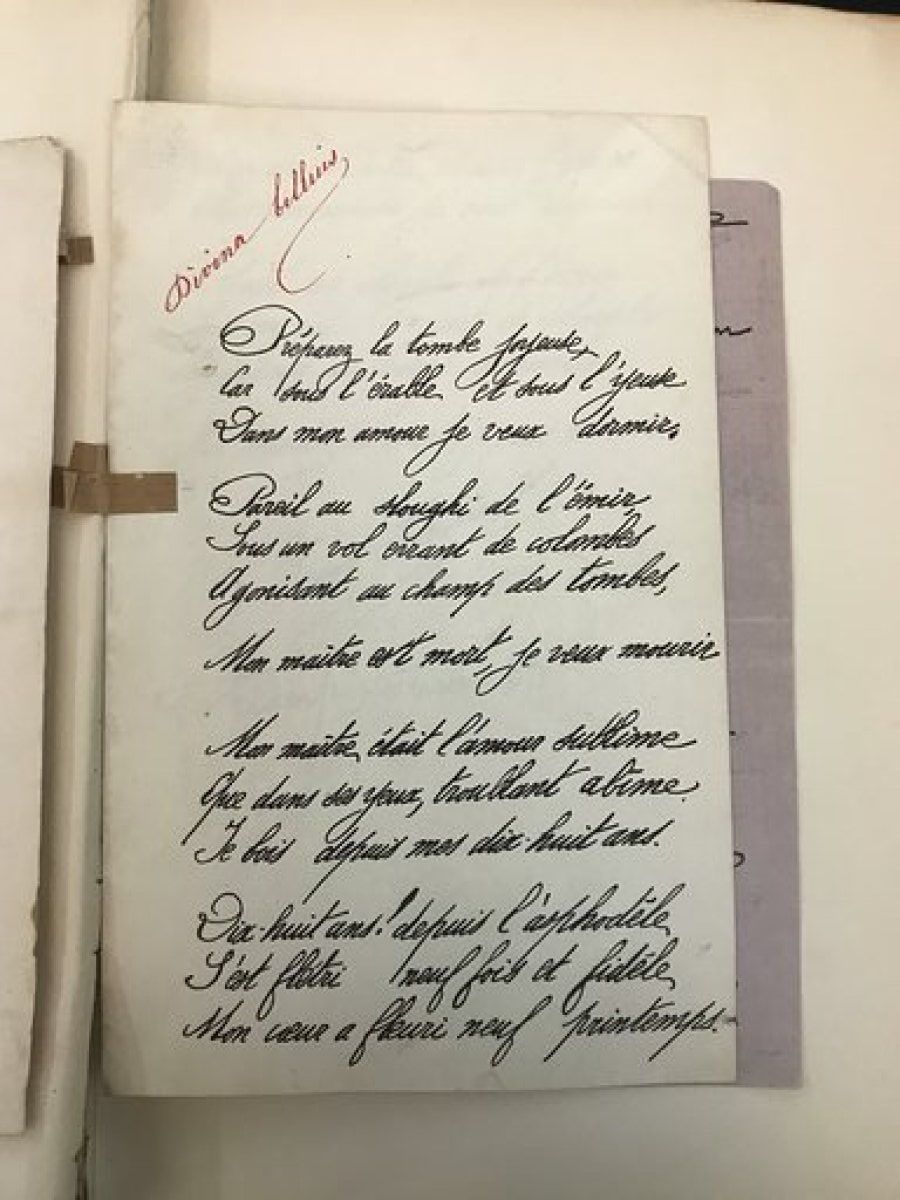 Divina belluis
Préparez la tombe joyeuse,
Car sous l'érable et sous l'yeuse
Dans mon amour je veux dormir,
Pareil au sloughi de l'émir
Sous un vol errant de colombes
Agonisant au champ des tombes,
Mon maître est mort, je veux mourir
Mon maître, était l'amour sublime
Que dans ses yeux, troublant abîme
Je bois depuis mes dix-huit ans.
Dix-huit ans! depuis l'asphodèle
S'est flétri neuf fois et fidèle
Mon cœur a fleuri neuf printemps.